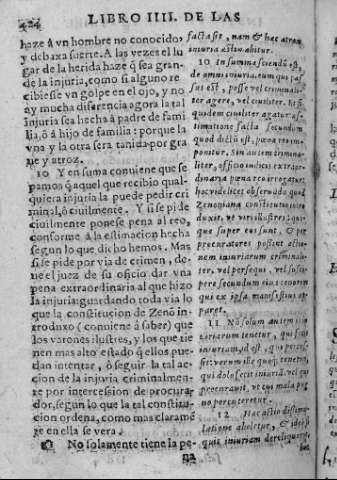 424 LIBRO IIII. DE LAS
haze à vn hombre no conocido,
y debaxa suerte. A las vezes el lu
gar de la herida haze q̃ sea gran-
de la injuria, como si alguno re
cibiesse vn golpe en el ojo, y no
ay mucha diferencia agora la tal
injuria sea hecha à padre de fami
lia, ò à hijo de familia: porque la
vna y la otra sera tenida por gra
ue y atroz.
10 Y en suma conuiene que se
pamos q̃ aquel que recibio qual-
quiera injuria la puede pedir cri
minal, ò ciuilmente. Y si se pide
ciuilmente ponese pena al reo,
conforme à la estimacion hecha
segun lo que dicho hemos. Mas
si se pide por via de crimen, de-
ue el juez de su oficio dar vna
pena extraordinaria al que hizo
la injuria: guardando toda via lo
que la constitucion de Zenõ in-
troduxo (conuiene à saber) que
los varones ilustres, y los que tie
nen mas alto estado q̃ ellos pue-
dan intentar, ò seguir la tal ac
cion de la injuria criminalmen-
te por intercession de procura-
dor, segun lo que la tal constitu-
cion ordena, como mas claramẽ
te en ella se vera.
No solamente tiene la pe-
na
facta sit, nam & hæc atrox
iniuria æstimabitur.
10 In summa sciendũ est,
de omni iniuria, eum qui pas-
sus est, posse vel criminali-
ter agere, vel ciuiliter. Et si
quidem ciuiliter agatur, æs-
timatione facta secundum
quod dictũ est, pœna reo im-
ponitur. Sin autem crimina-
liter, officio iudicis extraor-
dinaria pœna reo irrogatur:
hoc videlicet obseruãdo quod
Zenoniana constitutio intro-
duxit, vt viri illustres, qui-
que super eos sunt, & per
procuratores possint actio-
nem iniuriarum criminali-
ter, vel persequi, vel susci-
pere secundum eius tenorem
qui ex ipsa manifestius ap-
paret.
11 Non solum autem iniu
riarum tenetur, qui fecit
iniuriam, id est, qui percus-
sit: verum ille quoq; tenetur,
qui dolo fecit iniuriã, vel qui
procurauit, vt cui mala pug
no percuteretur.
12 Hæc actio dissimu-
latione aboletur, & ideo si
quis iniuriam dereliquerit,
hoc